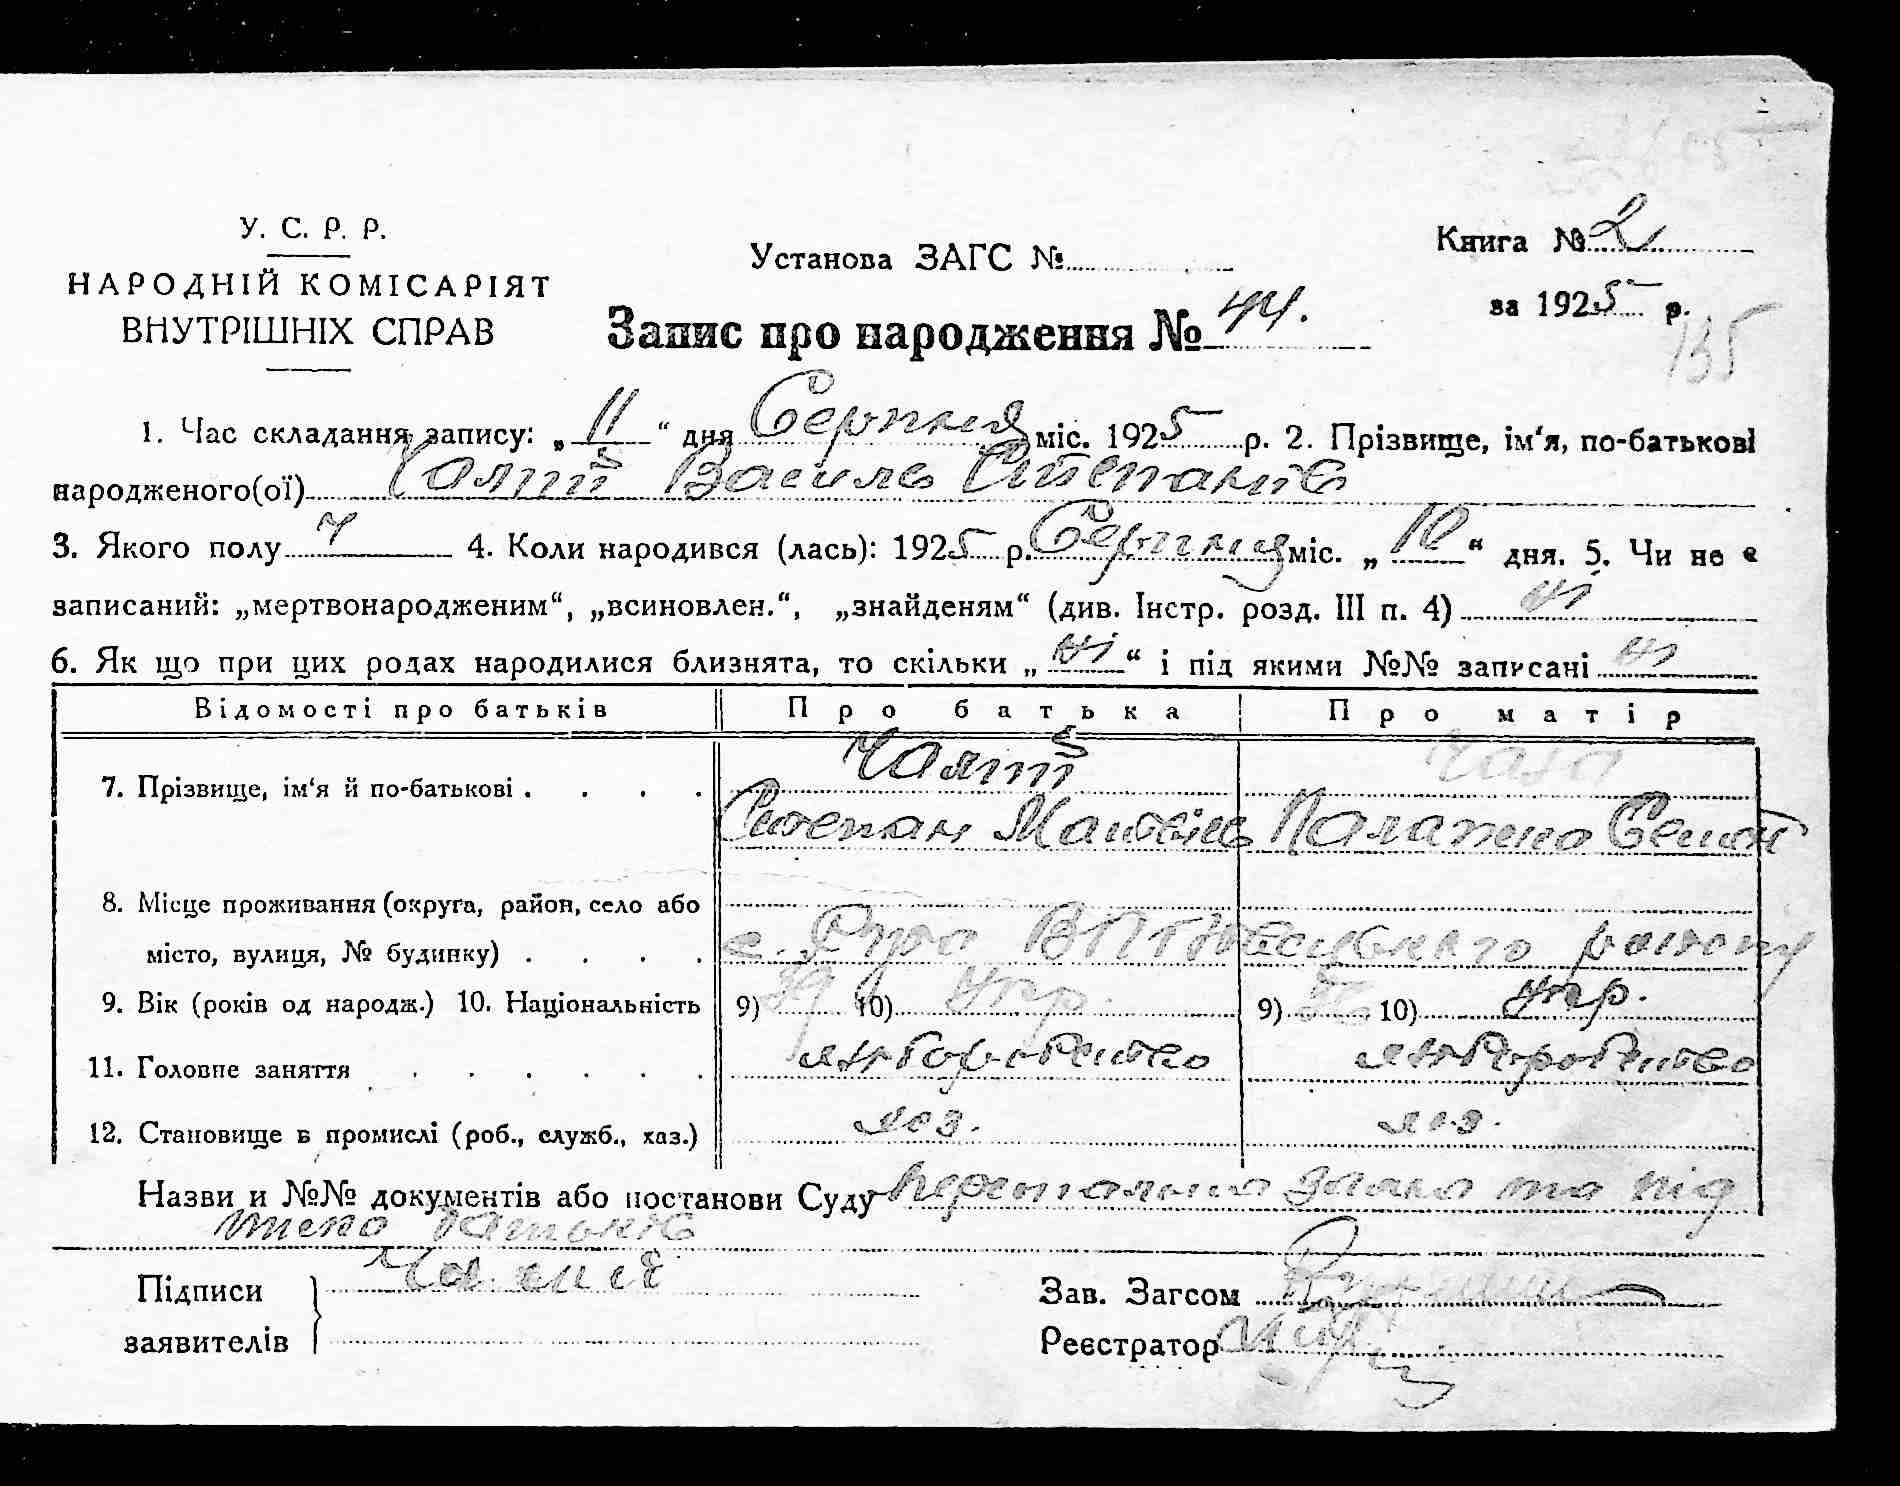 У. С. Р. Р.
НАРОДНІЙ КОМІСАРІЯТ
ВНУТРІШНІХ СПРАВ
Установа ЗАГС №
Книга № 2
за 1925 р.
135
Запис про народження № 44.
1. Час складання запису: „ 11 “ дня Серпня міс. 1925 р. 2. Прізвище, ім‘я, по-батькові
народженого(ої) Василь Степанів
3. Якого полу ч 4. Коли народився (лась): 1925 р. Серпня міс. „ 10 “ дня. 5. Чи не є
записаний: „мертвонародженим“, „всиновлен.“, „знайденям“ (див. Інстр. розд. III п. 4) ні
6. Як що при цих родах народилися близнята, то скільки „ ні “ і під якими №№ записані ні
Відомості про батьків Про батька Про матір
7. Прізвище, ім‘я й по-батькові
Степан Матвіїв
8. Місце проживання (округа, район, село або
місто, вулиця, № будинку) с. району
9. Вік (років од народж.) 10. Національність 9) 39 10) укр. 9) 10) укр.
11. Головне заняття хліборобство хліборобство
12. Становище в промислі (роб., служб., хаз.) хоз. хоз.
Назви и №№ документів або постанови Суду заява та під
батьків
Підписи
заявителів
Зав. Загсом
Реєстратор